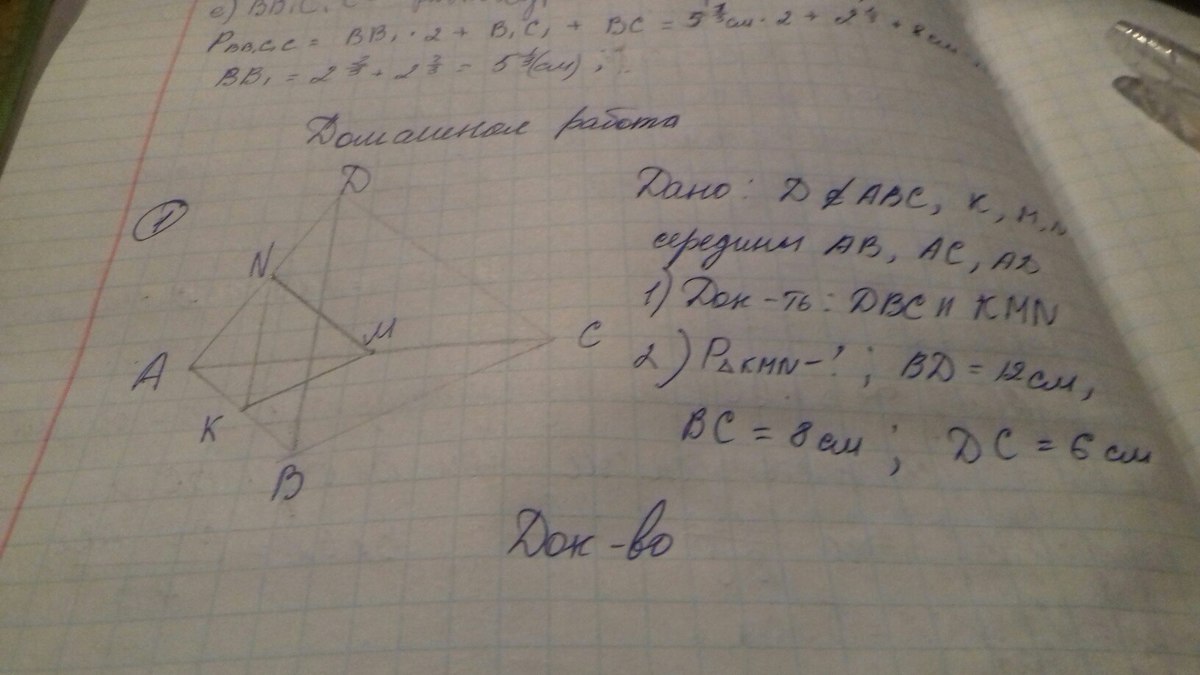 P BB₁C₁C = BB₁ · 2 + B₁C₁ + BC = 5⅓см · 2 +
BB₁ = 2⅔ + 2⅔ = 5⅓(см) ;
Домашняя работа
①
D
N
M
A
C
K
B
Дано: D ⊄ ABC, K, M, N
середины AB, AC, AD
1) Док-ть: DBC || KMN
2) P△KMN - ? ; BD = 12 см,
BC = 8 см ; DC = 6 см
Док-во